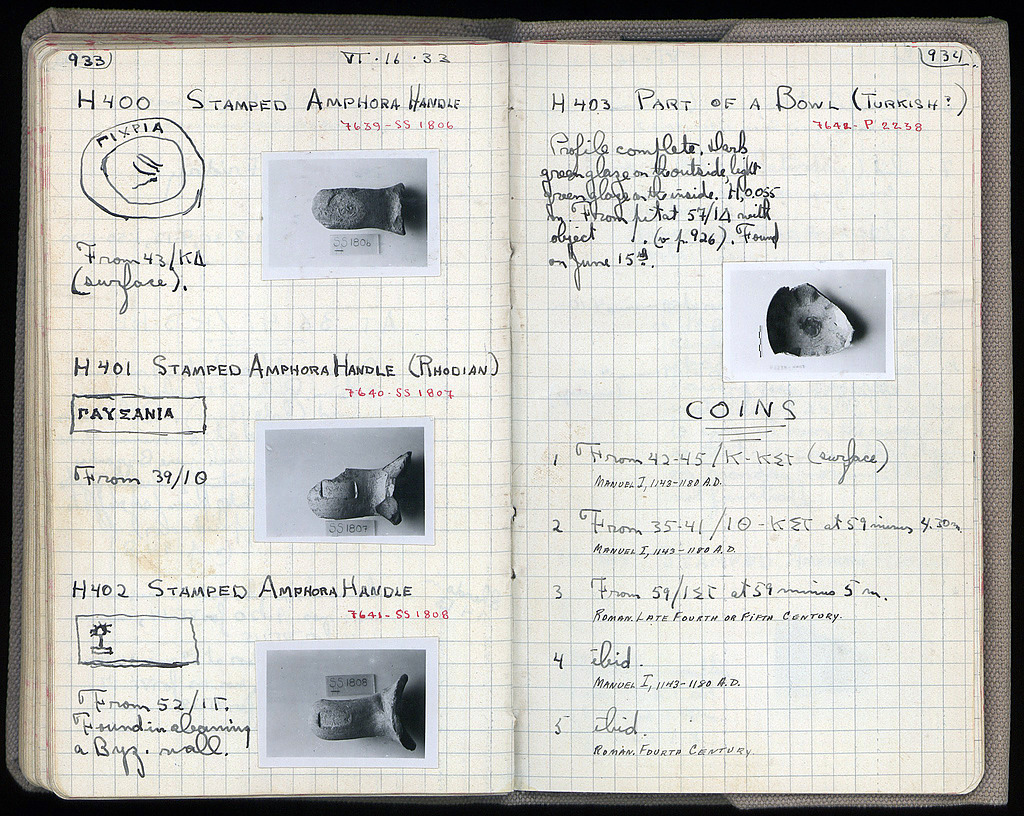 933
VI · 16 · 33
H 400 STAMPED AMPHORA HANDLE
7639 - SS 1806
ΓΙΧΡΙΑ
SS 1806
From 43/ΚΔ
(surface).
H 401 STAMPED AMPHORA HANDLE (RHODIAN)
7640 - SS 1807
ΠΑΥΣΑΝΙΑ
From 39/ΙΘ
SS 1807
H 402 STAMPED AMPHORA HANDLE
7641 - SS 1808
SS 1808
From 52/ΙΓ.
Found in cleaning
a Byz. wall.
934
H 403 PART OF A BOWL (TURKISH?)
7642 - P 2238
Profile complete. Dark
green glaze on the outside, light
green glaze on the inside. H, 0.055
m. From pit at 57/ΙΔ with
object . (v p. 926). Found
on June 15th.
COINS
1 From 42-45/Κ-ΚΣΤ (surface)
MANUEL I, 1143-1180 A.D.
2 From 35-41/ΙΘ-ΚΣΤ at 59 minus 4.30 m.
MANUEL I, 1143-1180 A.D.
3 From 59/ΙΣΤ at 59 minus 5 m.
ROMAN. LATE FOURTH OR FIFTH CENTURY.
4 ibid.
MANUEL I, 1143-1180 A.D.
5 ibid.
ROMAN. FOURTH CENTURY.